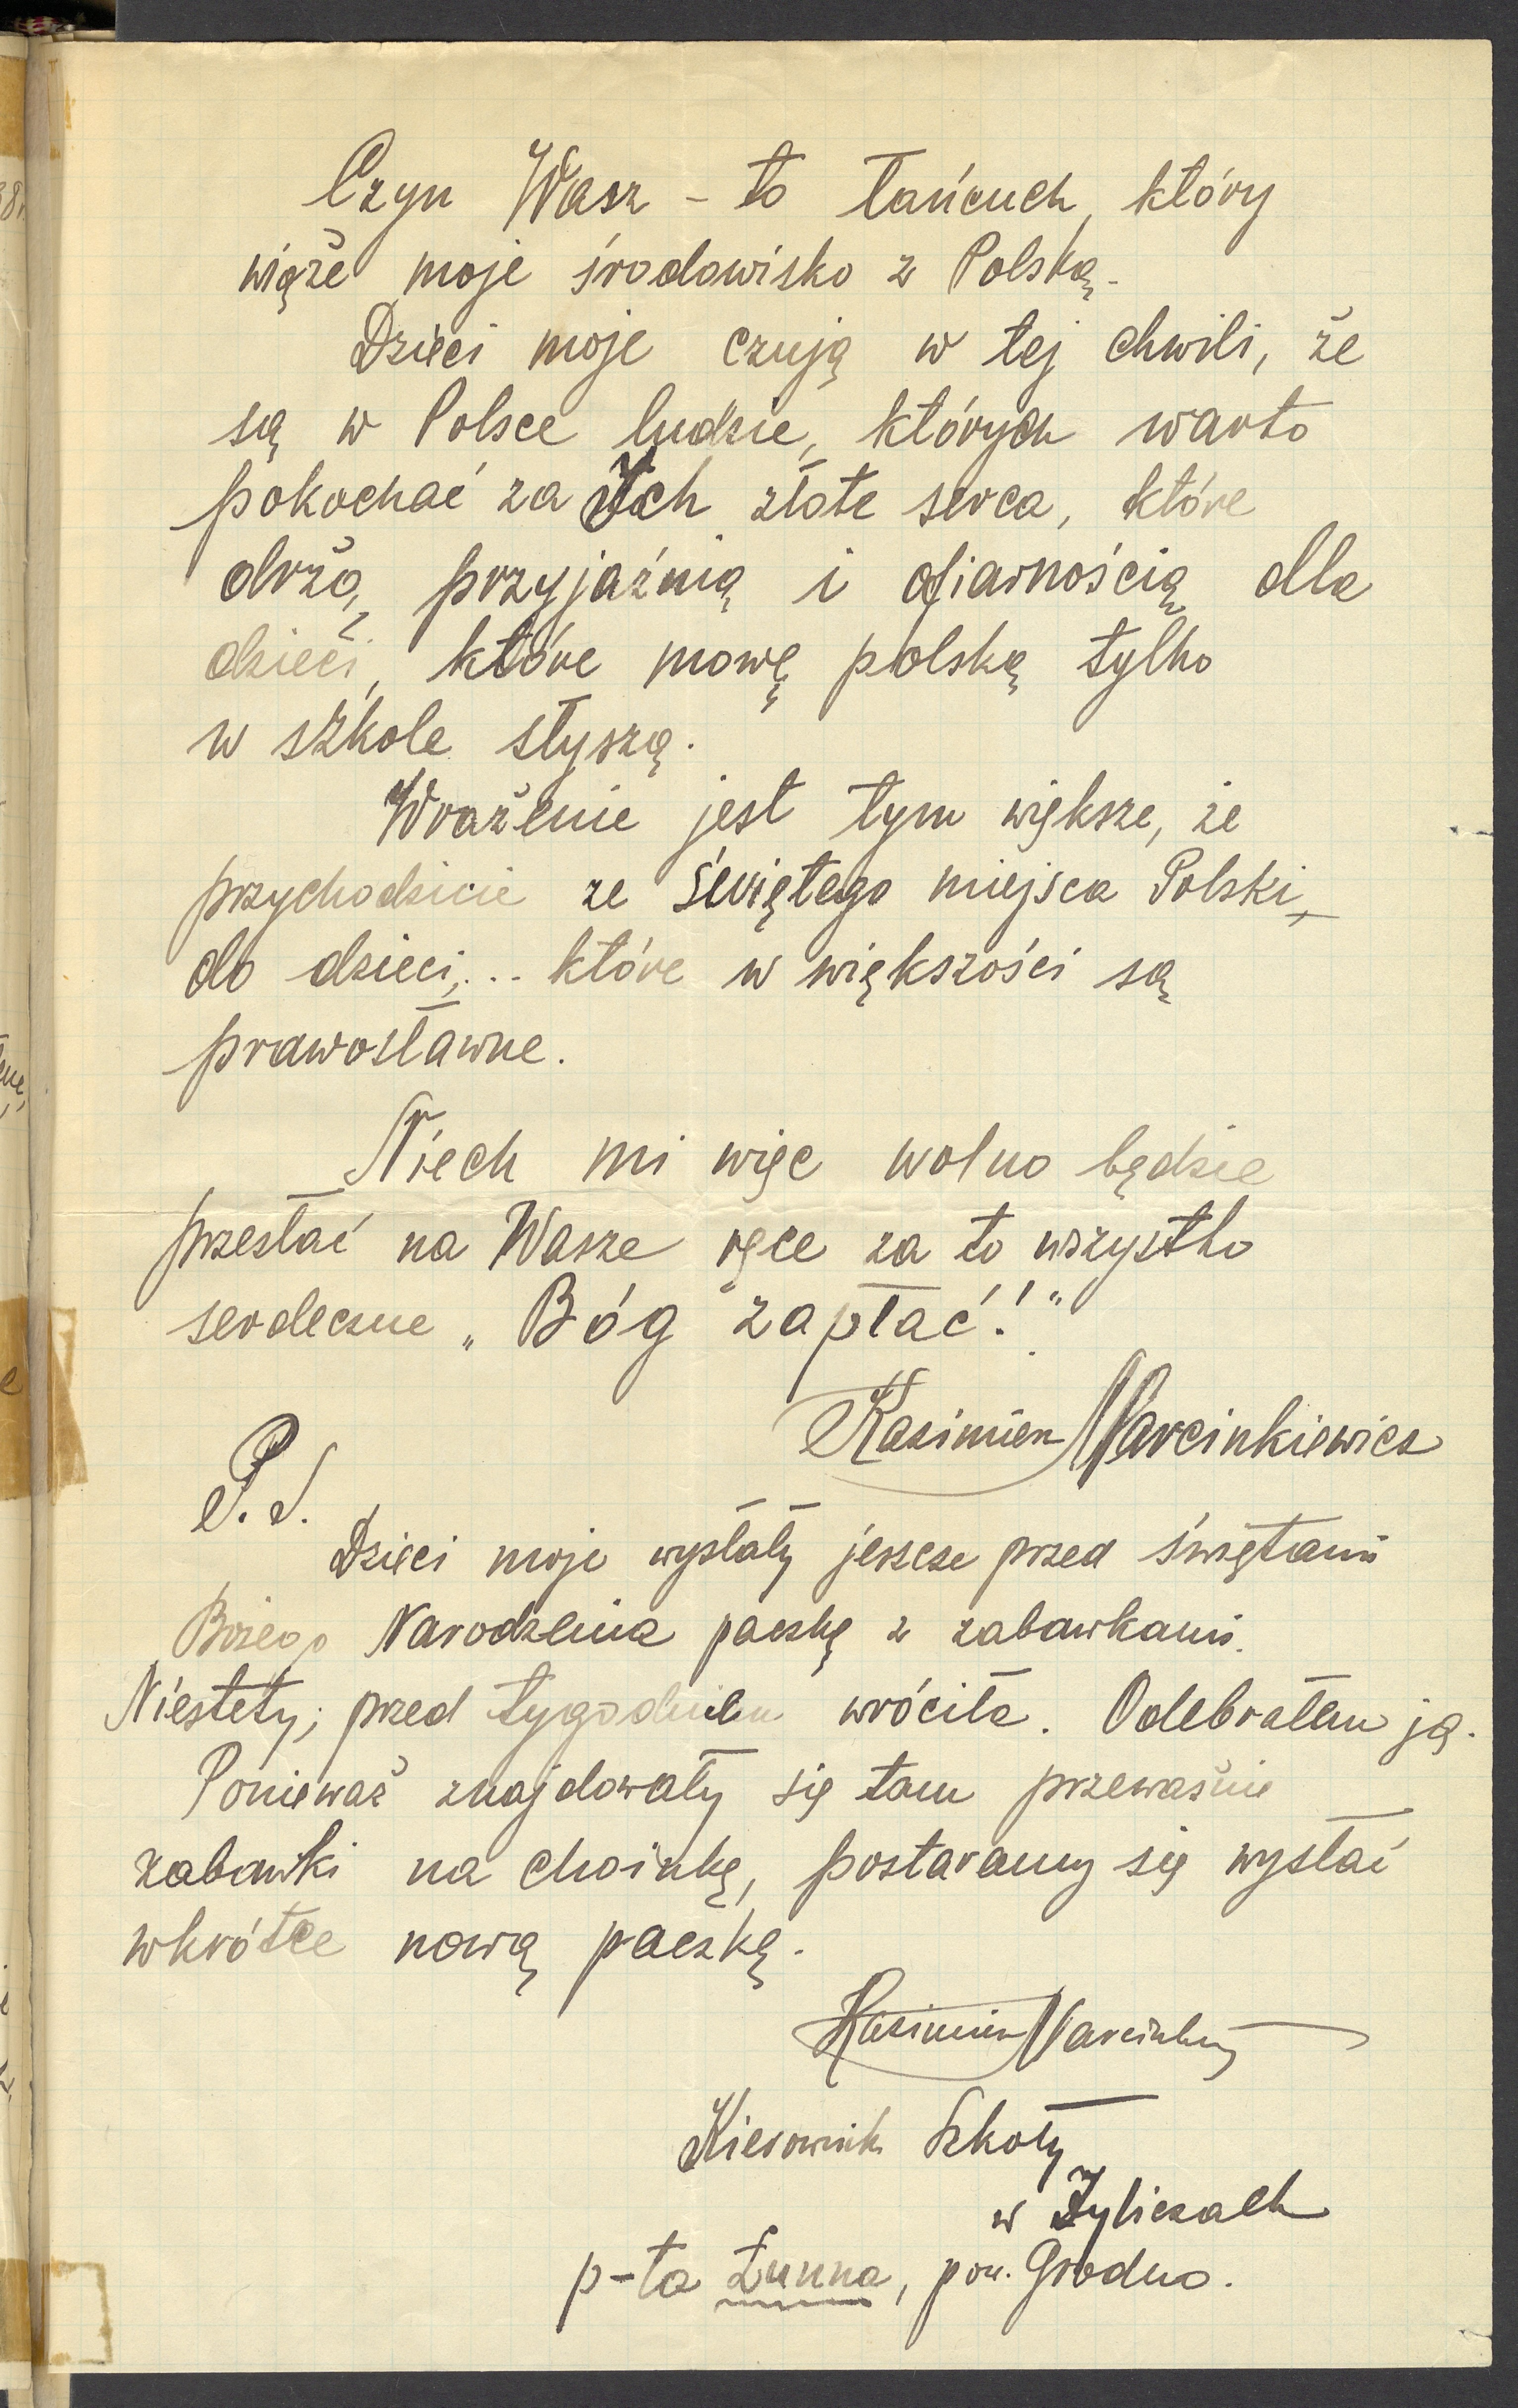 Czyn Wasz - to łańcuch, który
wiąże moje środowisko z Polską.
Dzieci moje czują w tej chwili, że
są w Polsce ludzie, których warto
pokochać za Ich złote serca, które
drżą przyjaźnią i ofiarnością dla
dzieci, które mowę polską tylko
w szkole słyszą.
Wrażenie jest tym większe, że
przychodzicie ze świętego miejsca Polski,
do dzieci,... które w większości są
prawosławne.
Niech mi więc wolno będzie
przesłać na Wasze ręce za to wszystko
serdeczne „Bóg zapłać!"
Kazimierz Marcinkiewicz
P.S.
Dzieci moje wysłały jeszcze przed świętami
Bożego Narodzenia paczkę z zabawkami.
Niestety, przed tygodniem wróciła. Odebrałem ją.
Ponieważ znajdowały się tam przeważnie
zabawki na choinkę, postaramy się wysłać
wkrótce nową paczkę.
Kazimierz
Kierownik Szkoły
w Żyliczach
p-ta Łunna, pow. Grodno.